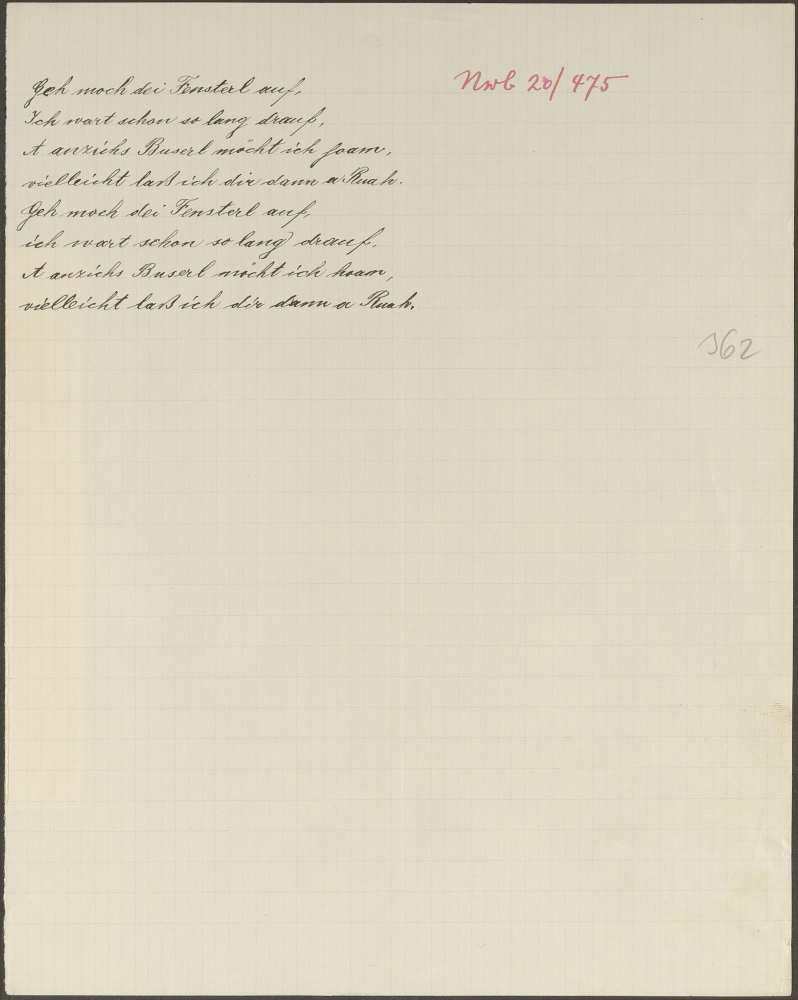 Geh moch dei Fensterl auf,
Nwb 20/475
Ich wart schon so lang drauf,
A anzichs Buserl möcht ich hoam,
vielleicht laß ich dir dann a Ruah.
Geh moch dei Fensterl auf,
ich wart schon so lang drauf,
A anzichs Buserl möcht ich hoam,
vielleicht laß ich dir dann a Ruah.
362